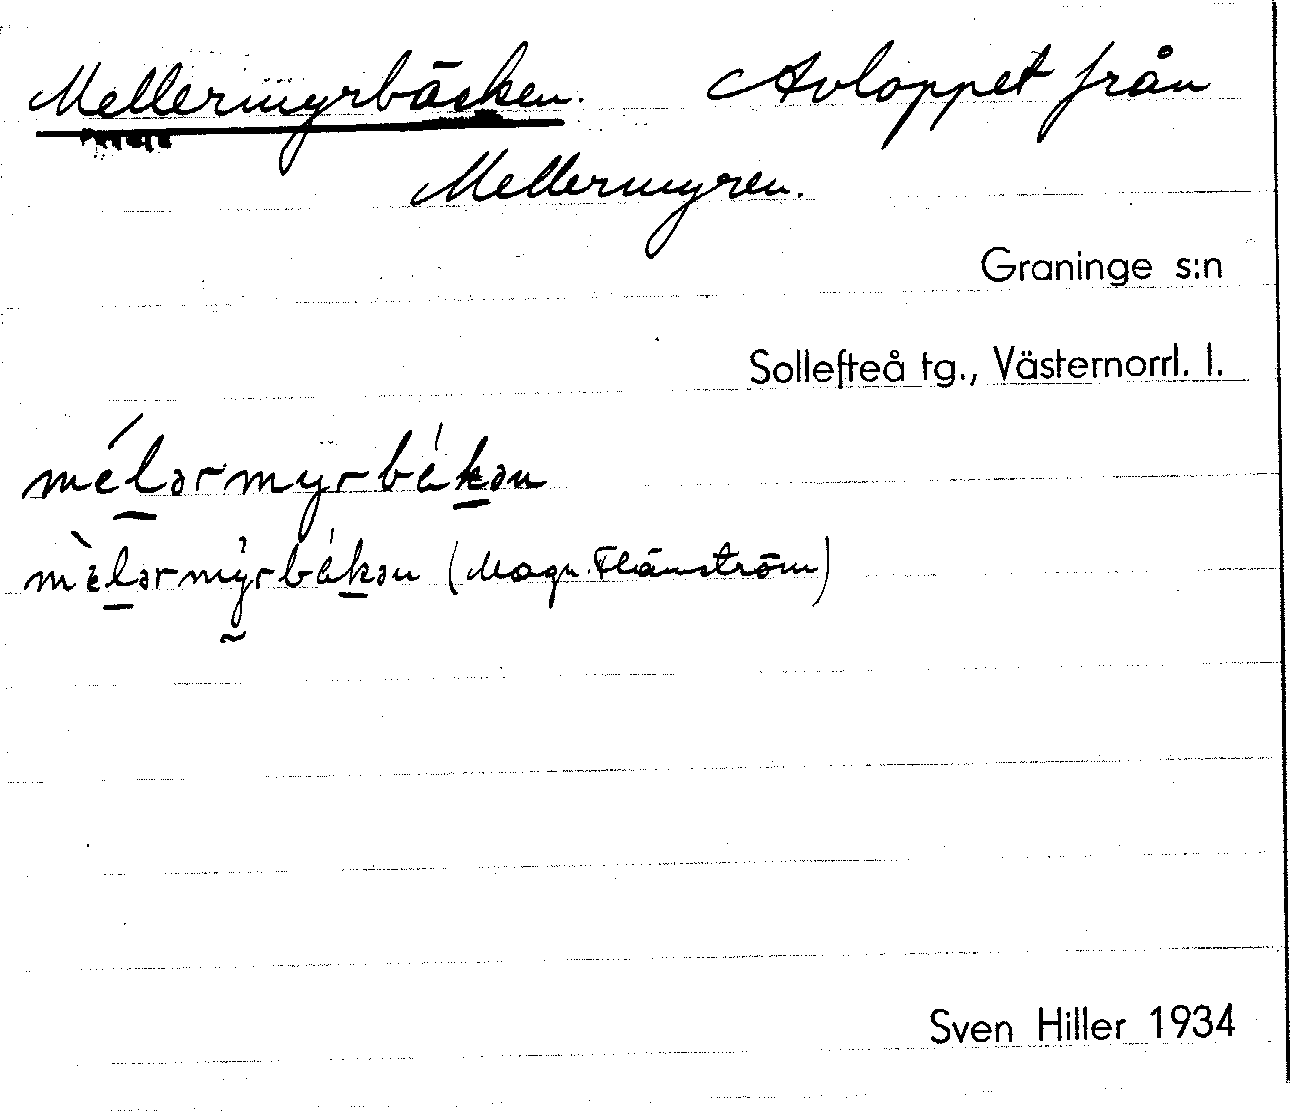 Mellermyrbäcken. Avloppet från
Mellermyren.
Graninge s:n
Sollefteå tg., Västernorrl. l.
mélǝrmyrbékǝn
mèlǝrmyrbékǝn (Magn. Flänström)
Sven Hiller 1934